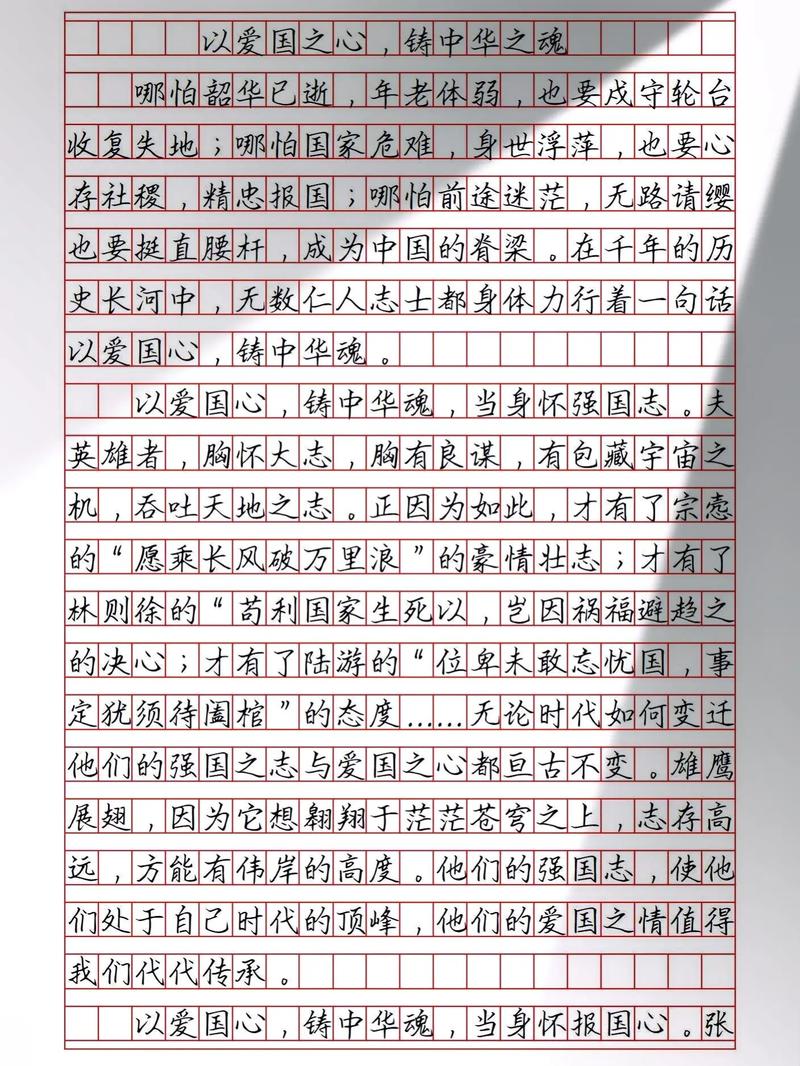 以爱国之心，铸中华之魂
哪怕韶华已逝，年老体弱，也要戍守轮台
收复失地；哪怕国家危难，身世浮萍，也要心
存社稷，精忠报国；哪怕前途迷茫，无路请缨
也要挺直腰杆，成为中国的脊梁。在千年的历
史长河中，无数仁人志士都身体力行着一句话
以爱国心，铸中华魂。
以爱国心，铸中华魂，当身怀强国志。夫
英雄者，胸怀大志，胸有良谋，有包藏宇宙之
机，吞吐天地之志。正因为如此，才有了宗悫
的“愿乘长风破万里浪”的豪情壮志；才有了
林则徐的“苟利国家生死以，岂因祸福避趋之
的决心；才有了陆游的“位卑未敢忘忧国，事
定犹须待阖棺”的态度……无论时代如何变迁
他们的强国之志与爱国之心都亘古不变。雄鹰
展翅，因为它想翱翔于茫茫苍穹之上，志存高
远，方能有伟岸的高度。他们的强国志，使他
们处于自己时代的顶峰，他们的爱国之情值得
我们代代传承。
以爱国心，铸中华魂，当身怀报国心。张